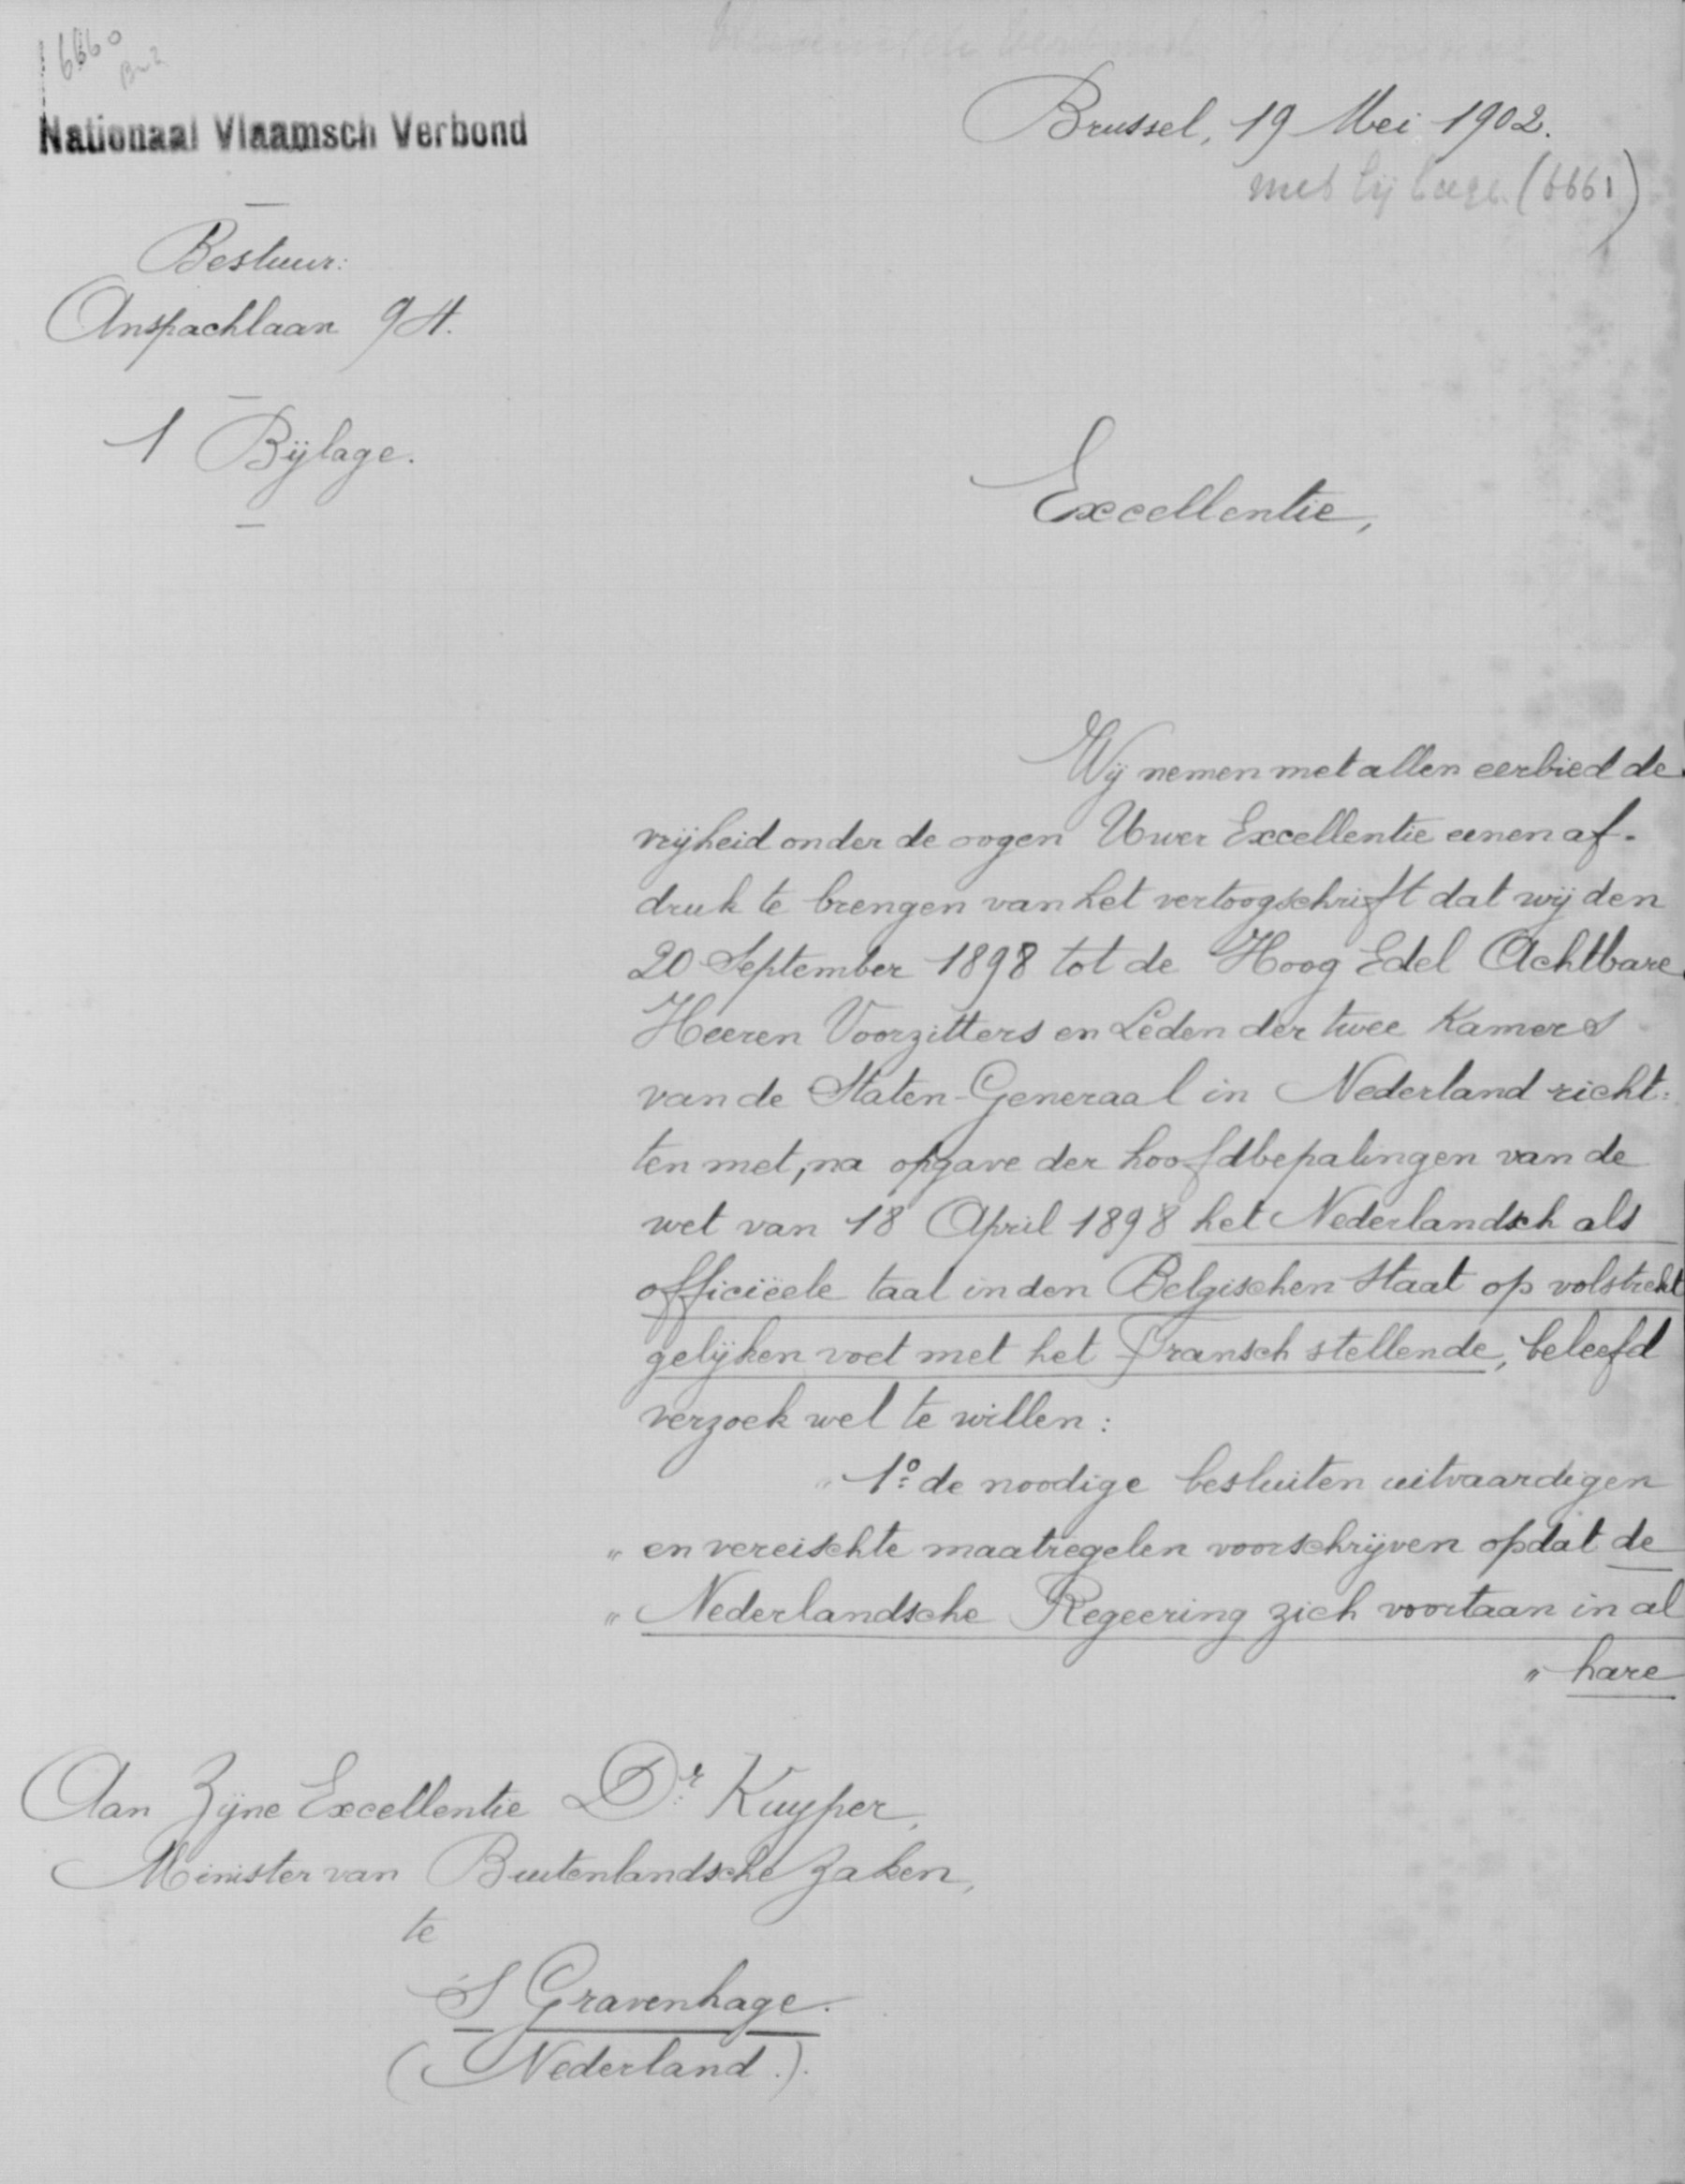 6660
Nationaal Vlaamsch Verbond
Brussel, 19 Mei 1902.
met bijlage (6661)
Bestuur:
Anspachlaan 94.
1 Bijlage.
Excellentie,
Wij nemen met allen eerbied de
vrijheid onder de oogen Uwer Excellentie eenen af-
druk te brengen van het vertoogschrift dat wij den
20 September 1898 tot de Hoog Edel Achtbare
Heeren Voorzitters en Leden der twee Kamers
van de Staten-Generaal in Nederland richt:
ten met, na opgave der hoofdbepalingen van de
wet van 18 April 1898 het Nederlandsch als
officiëele taal in den Belgischen Staat op volstrekt
gelijken voet met het Fransch stellende, beleefd
verzoek wel te willen:
" 1º de noodige besluiten uitvaardigen
" en vereischte maatregelen voorschrijven opdat de
" Nederlandsche Regeering zich voortaan in al
" hare
Aan Zijne Excellentie Dr Kuyper,
Minister van Buitenlandsche Zaken,
te
'S Gravenhage.
(Nederland.).